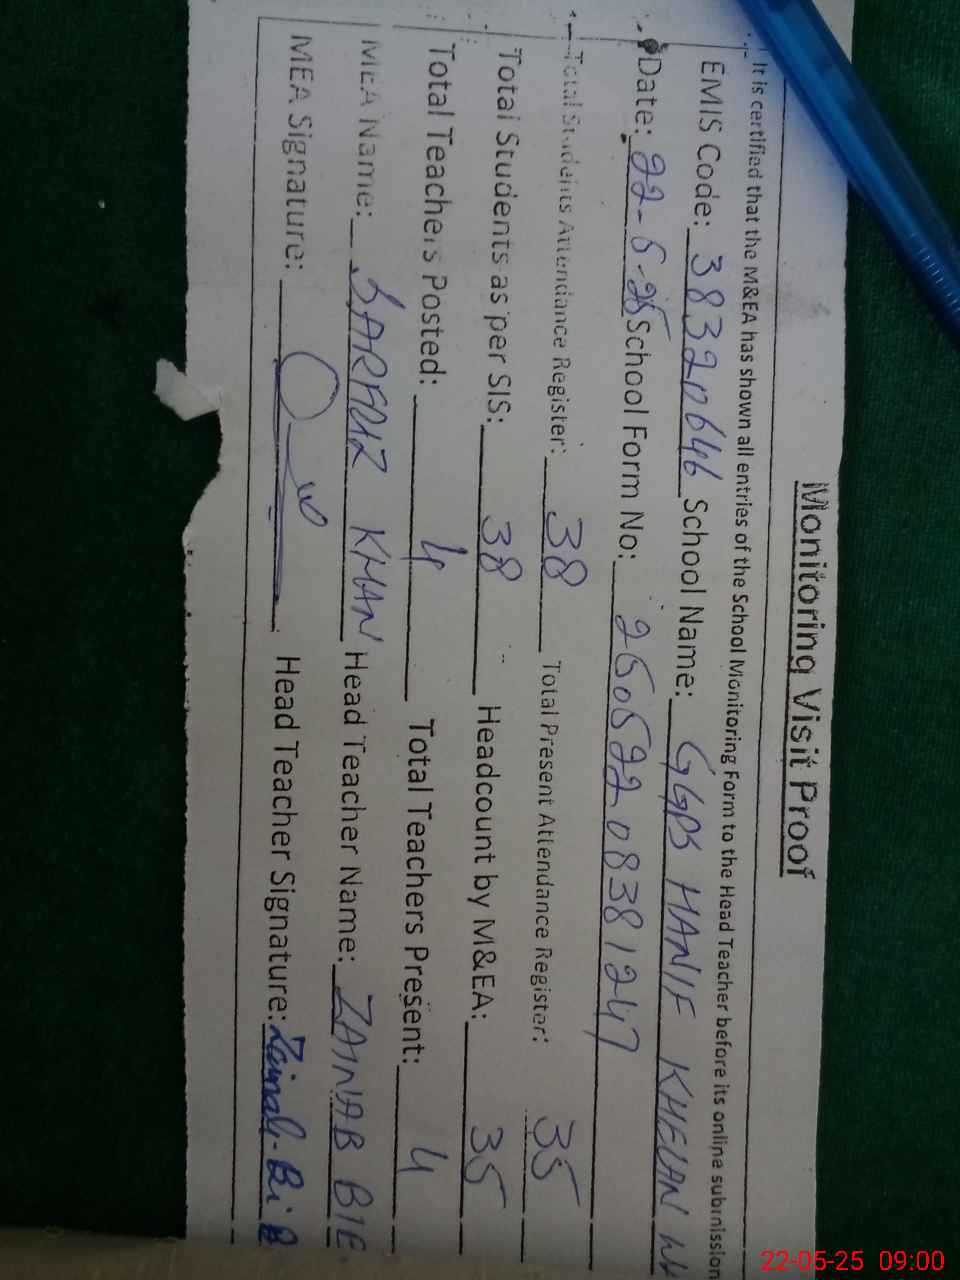 Monitoring Visit Proof
It is certified that the M&EA has shown all entries of the School Monitoring Form to the Head Teacher before its online submission
EMIS Code: 38320646 School Name: GGPS HANIF KHELAN W
Date: 22-5-25 School Form No: 25052208381247
Total Students Attendance Register: 38 Total Present Attendance Register: 35
Total Students as per SIS: 38 Headcount by M&EA: 35
Total Teachers Posted: 4 Total Teachers Present: 4
MEA Name: SARFRAZ KHAN Head Teacher Name: ZAINAB BIE
MEA Signature: Head Teacher Signature: Zainab Bi B
22-05-25 09:00